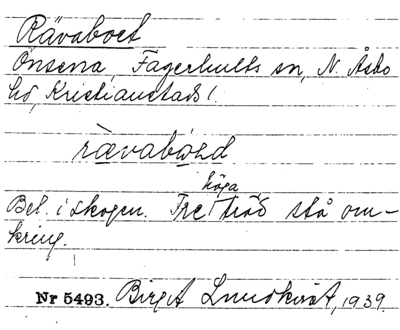 Rävaboet
Önserna, Fagerhults sn, N. Åsbo
hd, Kristianstads l.
rævabohd
Bel. i skogen. Tre höga träd stå om-
kring.
Nr 5493. Birgit Lundkvist, 1939.